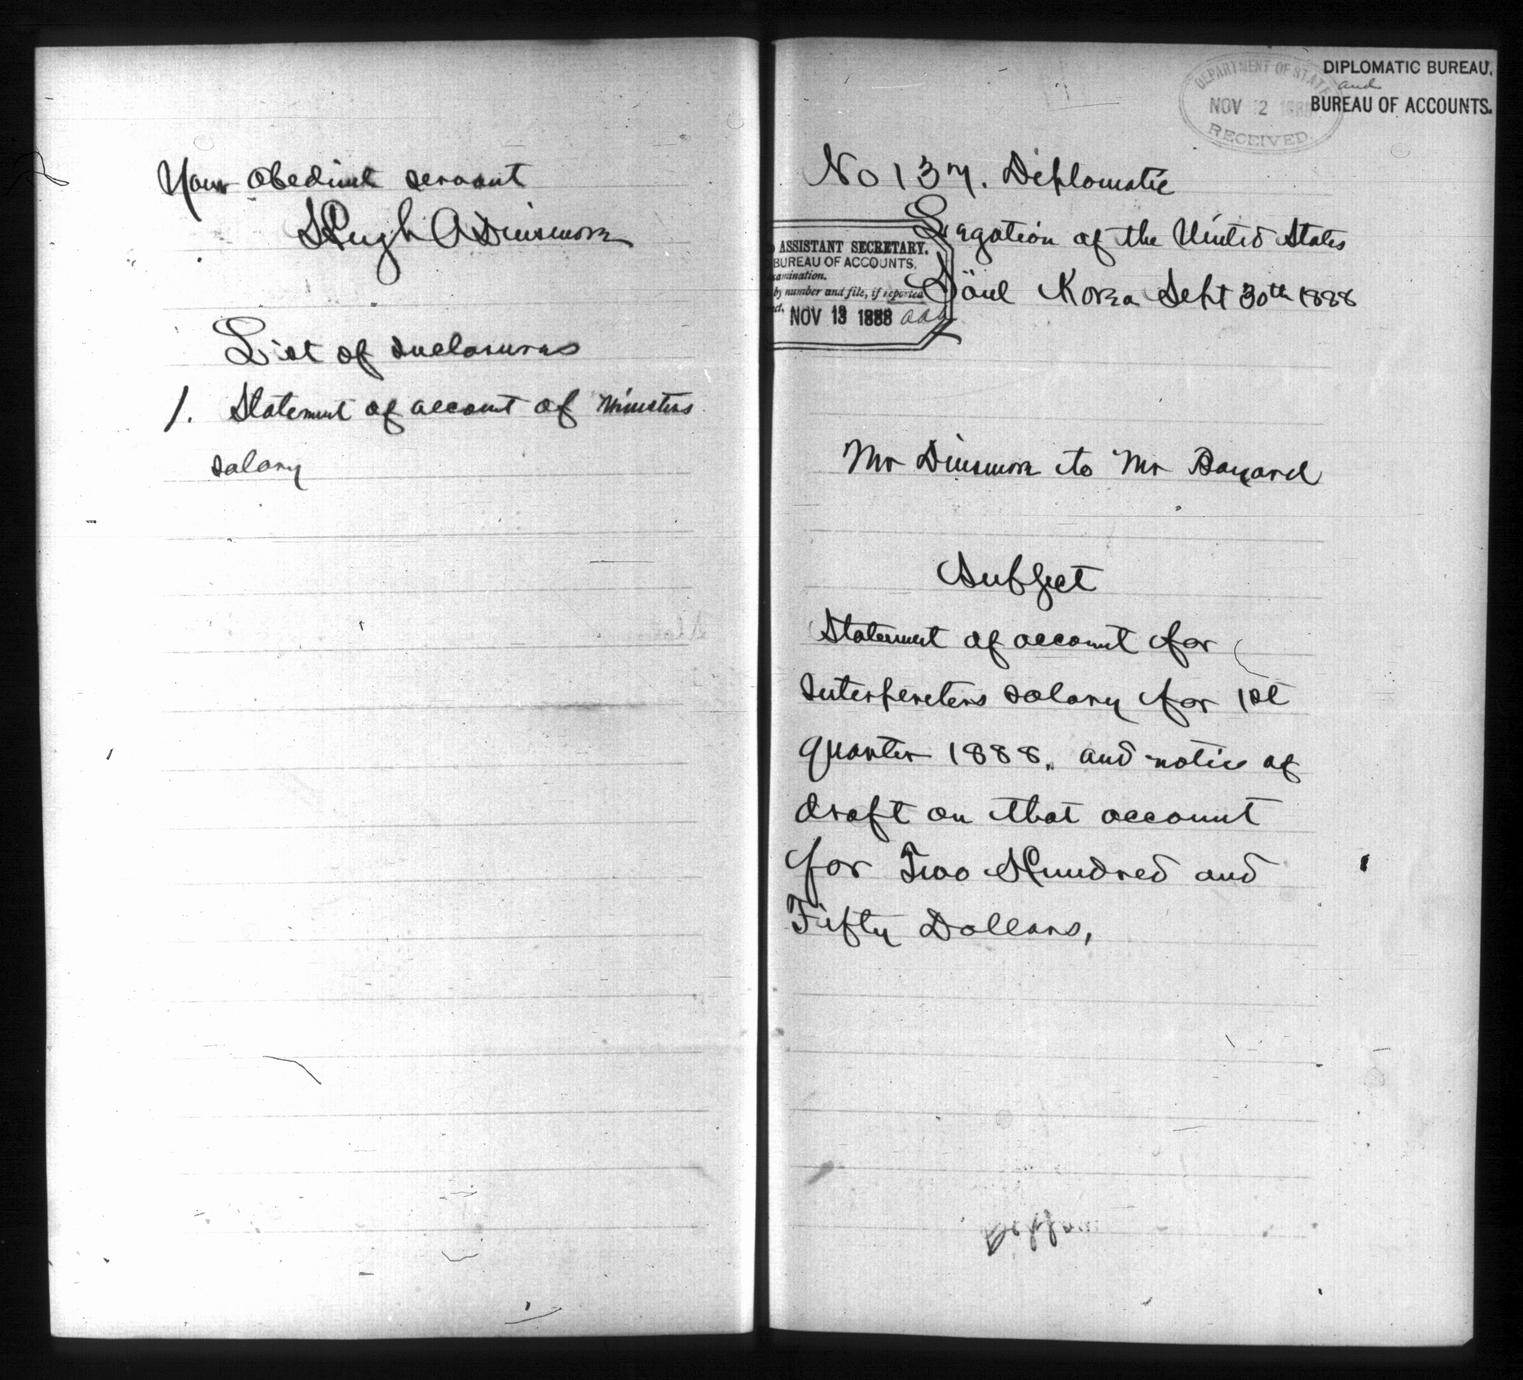 Your obedient servant
Hugh A Dinsmore
List of inclosures
1. Statement of account of Ministers
salary
DEPARTMENT OF STATE
NOV 12 1888
RECEIVED.
DIPLOMATIC BUREAU,
and
BUREAU OF ACCOUNTS.
No 137. Diplomatic
Legation of the United States
Söul Korea Sept 30th 1888
ASSISTANT SECRETARY.
BUREAU OF ACCOUNTS,
by number and file, if reported
NOV 13 1888
Mr Dinsmore to Mr Bayard
Subject
Statement of account for
Interpreters salary for 1st
quarter 1888. and notice of
draft on that account
for Two Hundred and
Fifty Dollars,